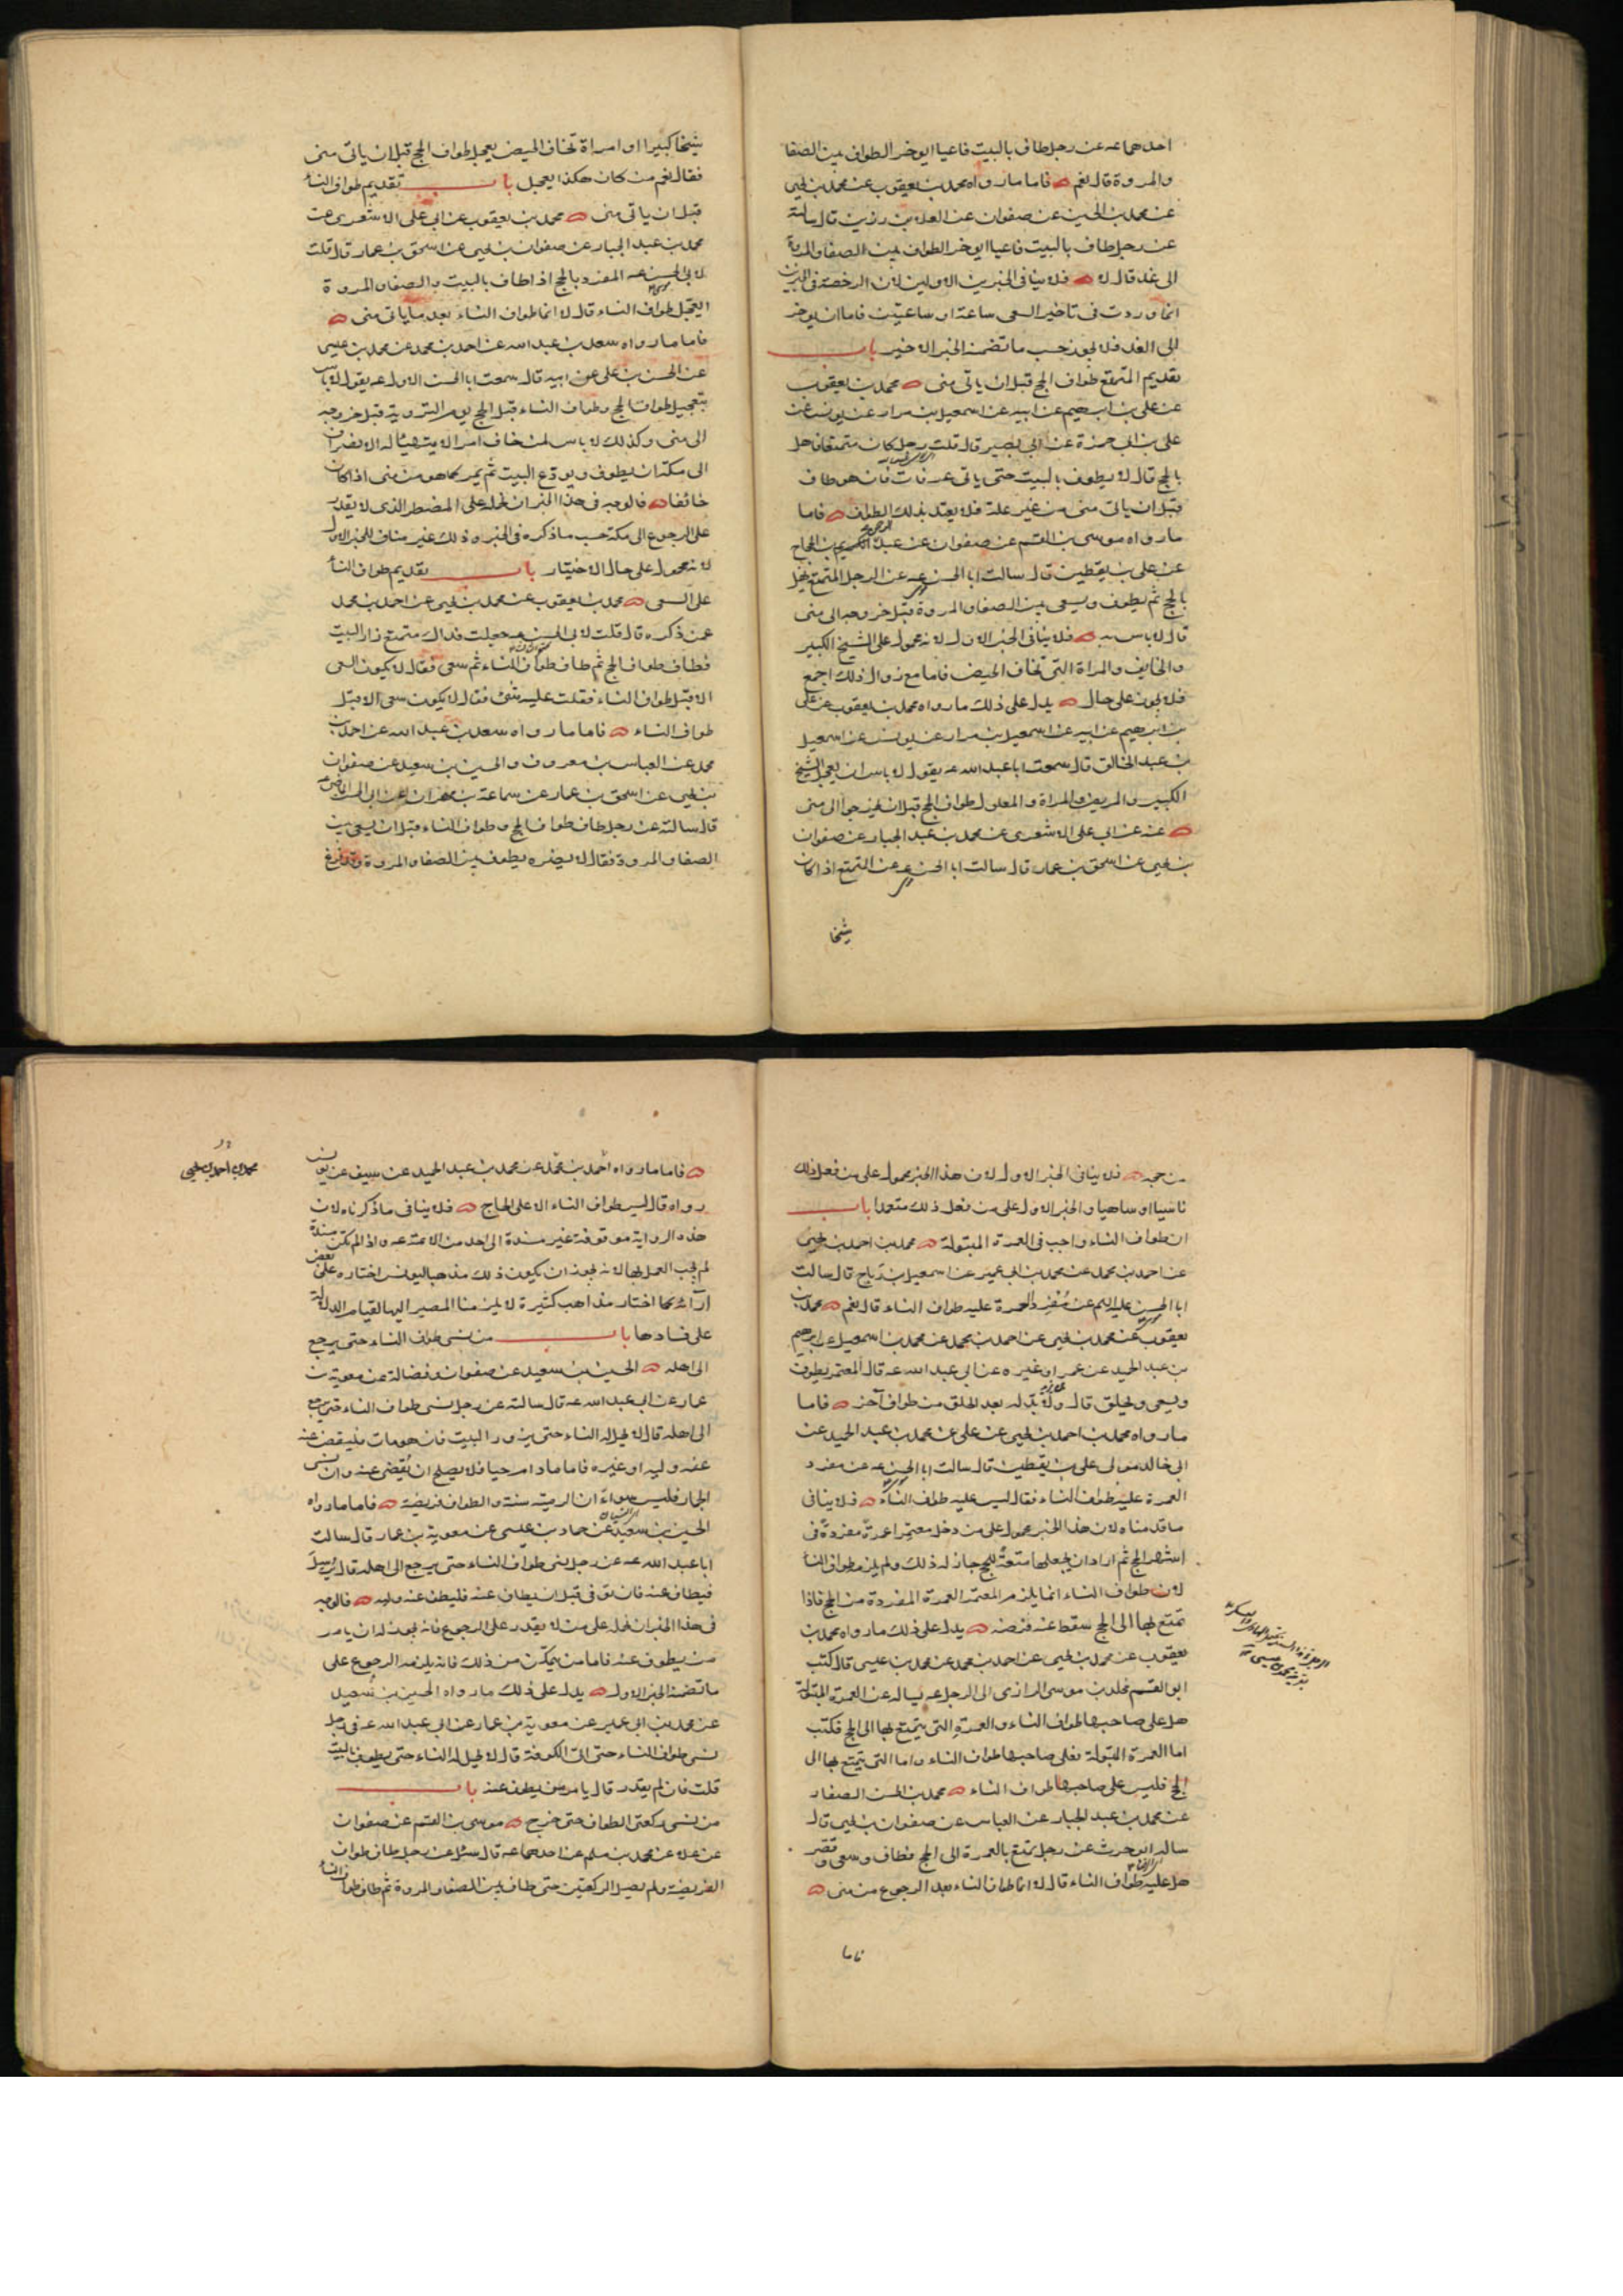 احدهما عه عن رجل طاف بالبيت فاعيا ايوخر الطواف بين الصفا
والمروة قال نعم فاما ما رواه محمد بن يعقوب عن محمد بن يحيى
عن محمد بن الحسين عن صفوان عن العلا بن رزين قال سالته
عن رجل طاف بالبيت فاعيا ايوخر الطواف بين الصفا والمروة
الى غد قال لا فلا ينافى الخبرين الاولين لان الرخصة فى الخبرين
انما وردت فى تاخير السعى ساعة او ساعتين فاما ان يوخر
الى الغد فلا يجوز حسب ما تضمنه الخبر الاخير باب
تقديم المتمتع طواف الحج قبل ان ياتى منى محمد بن يعقوب
عن على بن ابرهيم عن ابيه عن اسمعيل بن مرار عن يونس عن
على بن ابى حمزة عن ابى بصير قال قلت رجل كان متمتعا فاهل
بالحج قال لا يطوف بالبيت حتى ياتى عرفات فان هو طاف
قبل ان ياتى منى من غير علة فلا يعتد بذلك الطواف فاما
ما رواه موسى بن القسم عن صفوان عن عبد الرحمن بن الحجاج
عن على بن يقطين قال سالت ابا الحسن عه عن الرجل المتمتع يهل
بالحج ثم يطوف ويسعى بين الصفا والمروة قبل خروجه الى منى
قال لا باس به فلا ينافى الخبر الاول لانه محمول على الشيخ الكبير
والخايف والمراة التى تخاف الحيض فاما مع زوال ذلك اجمع
فلا يجوز على حال يدل على ذلك ما رواه محمد بن يعقوب عن على
بن ابرهيم عن ابيه عن اسمعيل بن مرار عن يونس عن اسمعيل
بن عبد الخالق قال سمعت ابا عبد الله عه يقول لا باس ان يعجل الشيخ
الكبير والمريض والمراة والمعلول طواف الحج قبل ان يخرجوا الى منى
عنه عن ابى على الاشعرى عن محمد بن عبد الجبار عن صفوان
بن يحيى عن اسحق بن عمار قال سالت ابا الحسن عه عن المتمتع اذا كان
شيخا
شيخا كبيرا او امراة تخاف الحيض يعجل طواف الحج قبل ان ياتى منى
فقال نعم من كان هكذا يعجل باب تقديم طواف النسا
قبل ان ياتى منى محمد بن يعقوب عن ابى على الاشعرى عن
محمد بن عبد الجبار عن صفوان بن يحيى عن اسحق بن عمار قال قلت
لابى الحسن عه المفرد بالحج اذا طاف بالبيت وبالصفا والمروة
ايعجل طواف النساء قال لا انما طواف النساء بعد ما ياتى منى
فاما ما رواه سعد بن عبد الله عن احمد بن محمد عن محمد بن عيسى
عن الحسن بن على عن ابيه قال سمعت ابا الحسن الاول عه يقول لا باس
بتعجيل طواف الحج وطواف النساء قبل الحج يوم التروية قبل خروجه
الى منى وكذلك لا باس لمن خاف امرا لا يتهيأ له الانصراف
الى مكة ان يطوف ويودع البيت ثم يمر كما هو من منى اذا كان
خائفا فالوجه فى هذا الخبر ان نحمله على المضطر الذى لا يقدر
على الرجوع الى مكة حسب ما ذكره فى الخبر وذلك غير مناف للخبر الاول
لانه محمول على حال الاختيار باب تقديم طواف النسا
على السعى محمد بن يعقوب عن محمد بن يحيى عن احمد بن محمد
عمن ذكره قال قلت لابى الحسن عه جعلت فداك متمتع زار البيت
فطاف طواف الحج ثم طاف طواف النساء ثم سعى فقال لا يكون السعى
الا قبل طواف النساء فقلت عليه شئ فقال لا يكون سعى الا قبل
طواف النساء فاما ما رواه سعد بن عبد الله عن احمد بن
محمد عن العباس بن معروف والحسين بن سعيد عن صفوان
بن يحيى عن اسحق بن عمار عن سماعة بن مهران عن ابى الحسن الماضى عه
قال سالته عن رجل طاف طواف الحج وطواف النساء قبل ان يسعى بين
الصفا والمروة فقال لا يضره يطوف بين الصفا والمروة وقد فرغ
من حجه فلا ينافى الخبر الاول لان هذا الخبر محمول على من فعل ذلك
ناسيا او ساهيا والخبر الاول على من فعل ذلك متعمدا باب
ان طواف النساء واجب فى العمرة المبتولة محمد بن احمد بن يحيى
عن احمد بن محمد عن محمد بن ابى عمير عن اسمعيل بن رباح قال سالت
ابا الحسن عليه السلم عن مفرد العمرة عليه طواف النساء قال نعم محمد بن
يعقوب عن محمد بن يحيى عن احمد بن محمد عن محمد بن اسمعيل عن ابرهيم
بن عبد الحميد عن عمر او غيره عن ابى عبد الله عه قال المعتمر يطوف
ويسعى ويحلق قال ولا بد له بعد الحلق من طواف آخر فاما
ما رواه محمد بن احمد بن يحيى عن على عن محمد بن عبد الحميد عن
ابى خالد مولى على بن يقطين قال سالت ابا الحسن عه عن مفرد
العمرة عليه طواف النساء فقال ليس عليه طواف النساء فلا ينافى
ما قدمناه لان هذا الخبر محمول على من دخل معتمرا عمرة مفردة فى
اشهر الحج ثم اراد ان يجعلها متعة للحج جاز له ذلك ولم يلزمه طواف النسا
لان طواف النساء انما يلزم المعتمر العمرة المفردة من الحج فاذا
تمتع بها الى الحج سقط عنه فرضه يدل على ذلك ما رواه محمد بن
يعقوب عن محمد بن يحيى عن احمد بن محمد عن محمد بن عيسى قال كتب
ابو القسم مخلد بن موسى الرازى الى الرجل عه يساله عن العمرة المبتولة
هل على صاحبها طواف النساء والعمرة التى يتمتع بها الى الحج فكتب
اما العمرة المبتولة فعلى صاحبها طواف النساء واما التى يتمتع بها الى
الحج فليس على صاحبها طواف النساء محمد بن الحسن الصفار
عن محمد بن عبد الجبار عن العباس عن صفوان بن يحيى قال
ساله ابو حرث عن رجل تمتع بالعمرة الى الحج فطاف وسعى وقصر
هل عليه طواف النساء قال لا انما طواف النساء بعد الرجوع من منى
فاما
محمد بن احمد بن يحيى
فاما ما رواه احمد بن محمد عن محمد بن عبد الحميد عن سيف عن يونس
رواه قال ليس طواف النساء الا على الحاج فلا ينافى ما ذكرناه لان
هذه الرواية موقوفة غير مسندة الى احد من الائمة عه واذا لم تكن مسندة
لم يجب العمل بها لانه يجوز ان يكون ذلك مذهبا ليونس اختاره على بعض
آرائه كما اختار مذاهب كثيرة لا يلزمنا المصير اليها لقيام الدلالة
على فسادها باب من نسى طواف النساء حتى يرجع
الى اهله الحسين بن سعيد عن صفوان وفضالة عن معوية بن
عمار عن ابى عبد الله عه قال سالته عن رجل نسى طواف النساء حتى يرجع
الى اهله قال لا يحل له النساء حتى يزور البيت فان هو مات فليقض عنه
عنه وليه او غيره فاما ما دام حيا فلا يصلح ان يقضى عنه وان نسى
الجمار فليس سواء ان الرمية سنة والطواف فريضة فاما ما رواه
الحسين بن سعيد عن حماد بن عيسى عن معوية بن عمار قال سالت
ابا عبد الله عه عن رجل نسى طواف النساء حتى يرجع الى اهله قال يرسل
فيطاف عنه فان توفى قبل ان يطاف عنه فليطف عنه وليه فالوجه
فى هذا الخبر ان نحمله على من لا يقدر على الرجوع فانه يجوز له ان يامر
من يطوف عنه فاما من يتمكن من ذلك فانه يلزمه الرجوع على
ما تضمنه الخبر الاول يدل على ذلك ما رواه الحسين بن سعيد
عن محمد بن ابى عمير عن معوية بن عمار عن ابى عبد الله عه فى رجل
نسى طواف النساء حتى اتى الكوفة قال لا يحل له النساء حتى يطوف بالبيت
قلت فان لم يقدر قال يامر من يطوف عنه باب
من نسى ركعتى الطواف حتى خرج موسى بن القسم عن صفوان
عن علا عن محمد بن مسلم عن احدهما عه قال سئل عن رجل طاف طواف
الفريضة ولم يصل الركعتين حتى طاف بين الصفا والمروة ثم طاف طواف النسا